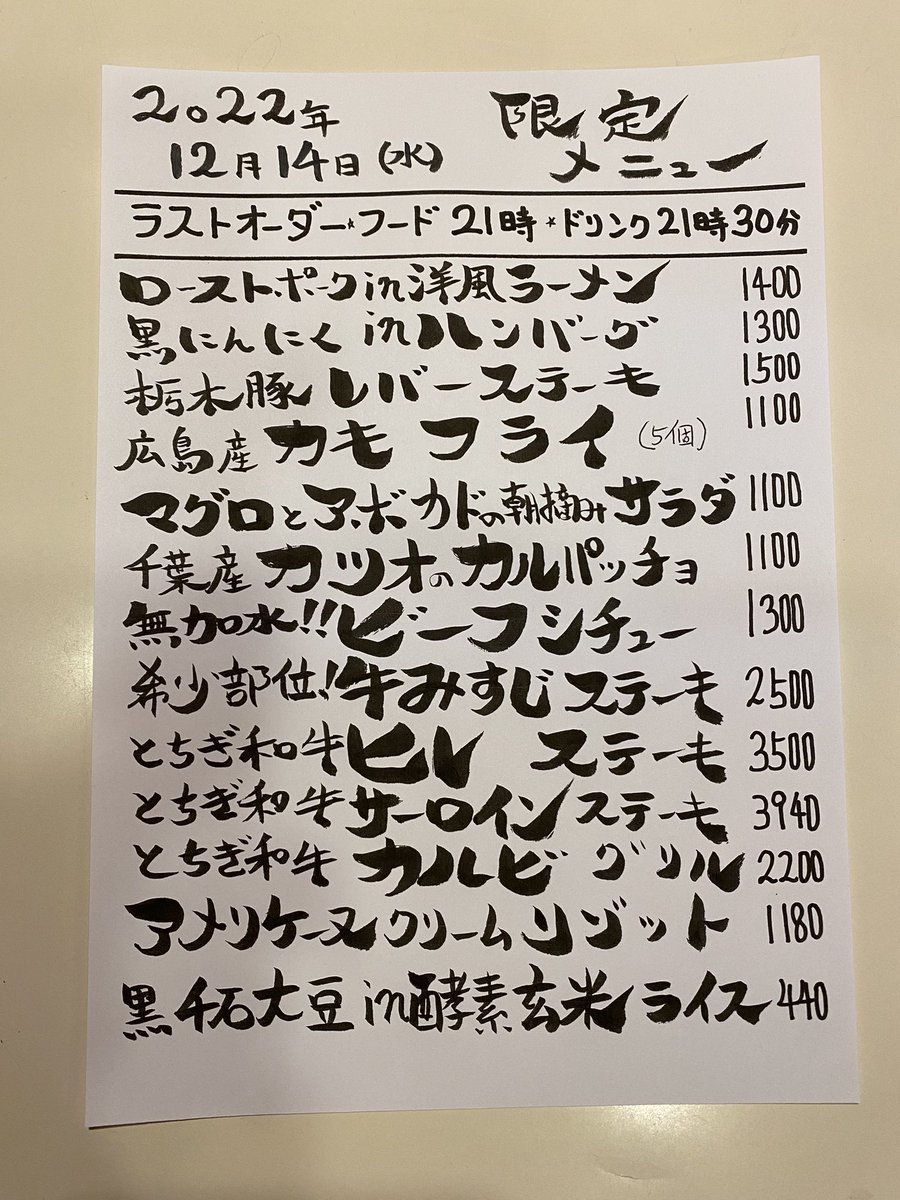 2022年 限定
12月14日(水) メニュー
ラストオーダー*フード 21時 *ドリンク21時30分
ローストポークin洋風ラーメン 1400
黒にんにく inハンバーグ 1300
栃木豚 レバーステーキ 1500
広島産 カキ フライ (5個) 1100
マグロとアボカドの朝摘みサラダ 1100
千葉産 カツオのカルパッチョ 1100
無加水!!ビーフシチュー 1300
希少部位!牛みすじステーキ 2500
とちぎ和牛ヒレ ステーキ 3500
とちぎ和牛サーロインステーキ 3940
とちぎ和牛カルビ グリル 2200
アメリケーヌクリームリゾット 1180
黒千石大豆in酵素玄米ライス 440